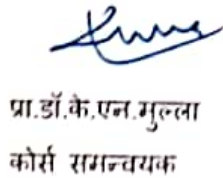 प्रा.डॉ.के.एन.मुल्ला
कोर्स समन्वयक